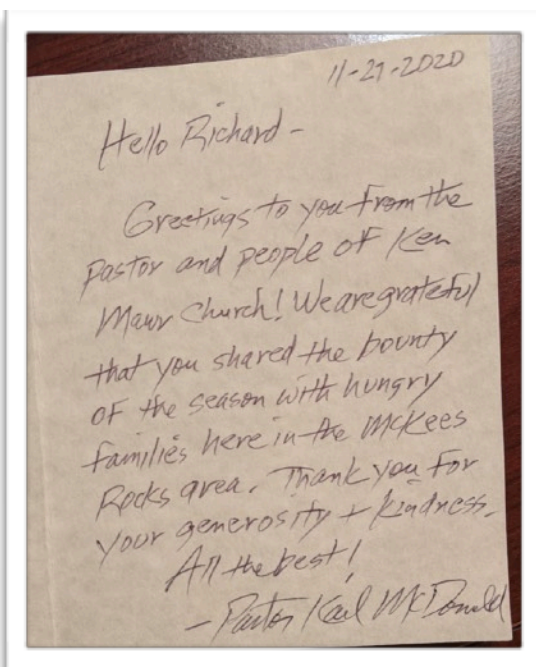 11-27-2020
Hello Richard -
Greetings to you from the
pastor and people of Ken
Mawr Church! We are grateful
that you shared the bounty
of the season with hungry
families here in the McKees
Rocks area. Thank you for
your generosity + kindness.
All the best!
- Pastor Karl McDonald